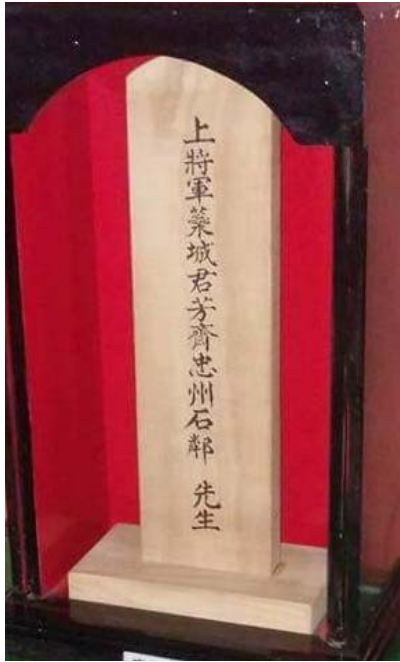 上將軍蘂城君芳齋忠州石鄰 先生